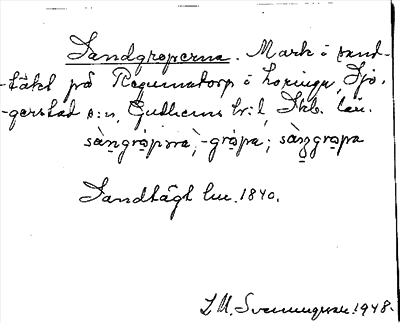 Sandgroperna. Mark i sand-
-täkt på Regumatorp i Loringa, Sjö-
-gerstad s:n, Gudhems hd, Skb. län.
sàngròpɴa, -gròpa; sàŋgropa
Sandtägt lm. 1840.
L M. Svenungsson. 1948.